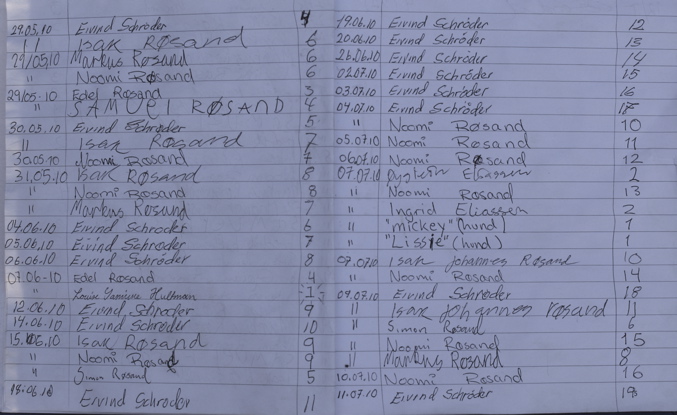 29.05.10 Eivind Schrøder 4
" Isak Røsand 6
29/05.10 Markus Røsand 6
" Noomi Røsand 6
29/05-10 Edel Røsand 3
" SAMUEL RØSAND 4
30.05.10 Eivind Schrøder 5
" Isak Røsand 7
30.05.10 Noomi Røsand 7
31.05.10 Isak Røsand 8
" Noomi Røsand 8
" Markus Røsand 7
04.06.10 Eivind Schrøder 6
05.06.10 Eivind Schrøder 7
06.06.10 Eivind Schrøder 8
07.06-10 Edel Røsand 4
" Louise 1
12.06.10 Eivind Schrøder 9
14.06-10 Eivind Schrøder 10
15.06.10 Isak Røsand 9
" Noomi Røsand 9
" Simon Røsand 5
18.06.10 Eivind Schrøder 11
19.06.10 Eivind Schrøder 12
20.06.10 Eivind Schrøder 13
26.06.10 Eivind Schrøder 14
02.07.10 Eivind Schrøder 15
03.07.10 Eivind Schrøder 16
04.07.10 Eivind Schrøder 17
" Noomi Røsand 10
05.07.10 Noomi Røsand 11
06.07.10 Noomi Røsand 12
07.07.10 Øystein Eliassen 2
" Noomi Røsand 13
" Ingrid Eliassen 2
" "mickey" (hund) 1
" "Lissie" (hund) 1
07.07.10 Isak Johannes Røsand 10
" Noomi Røsand 14
09.07.10 Eivind Schrøder 18
" Isak Johannes Røsand 11
" Simon Røsand 6
" Noomi Røsand 15
" Markus Røsand 8
10.07.10 Noomi Røsand 16
11.07.10 Eivind Schrøder 19